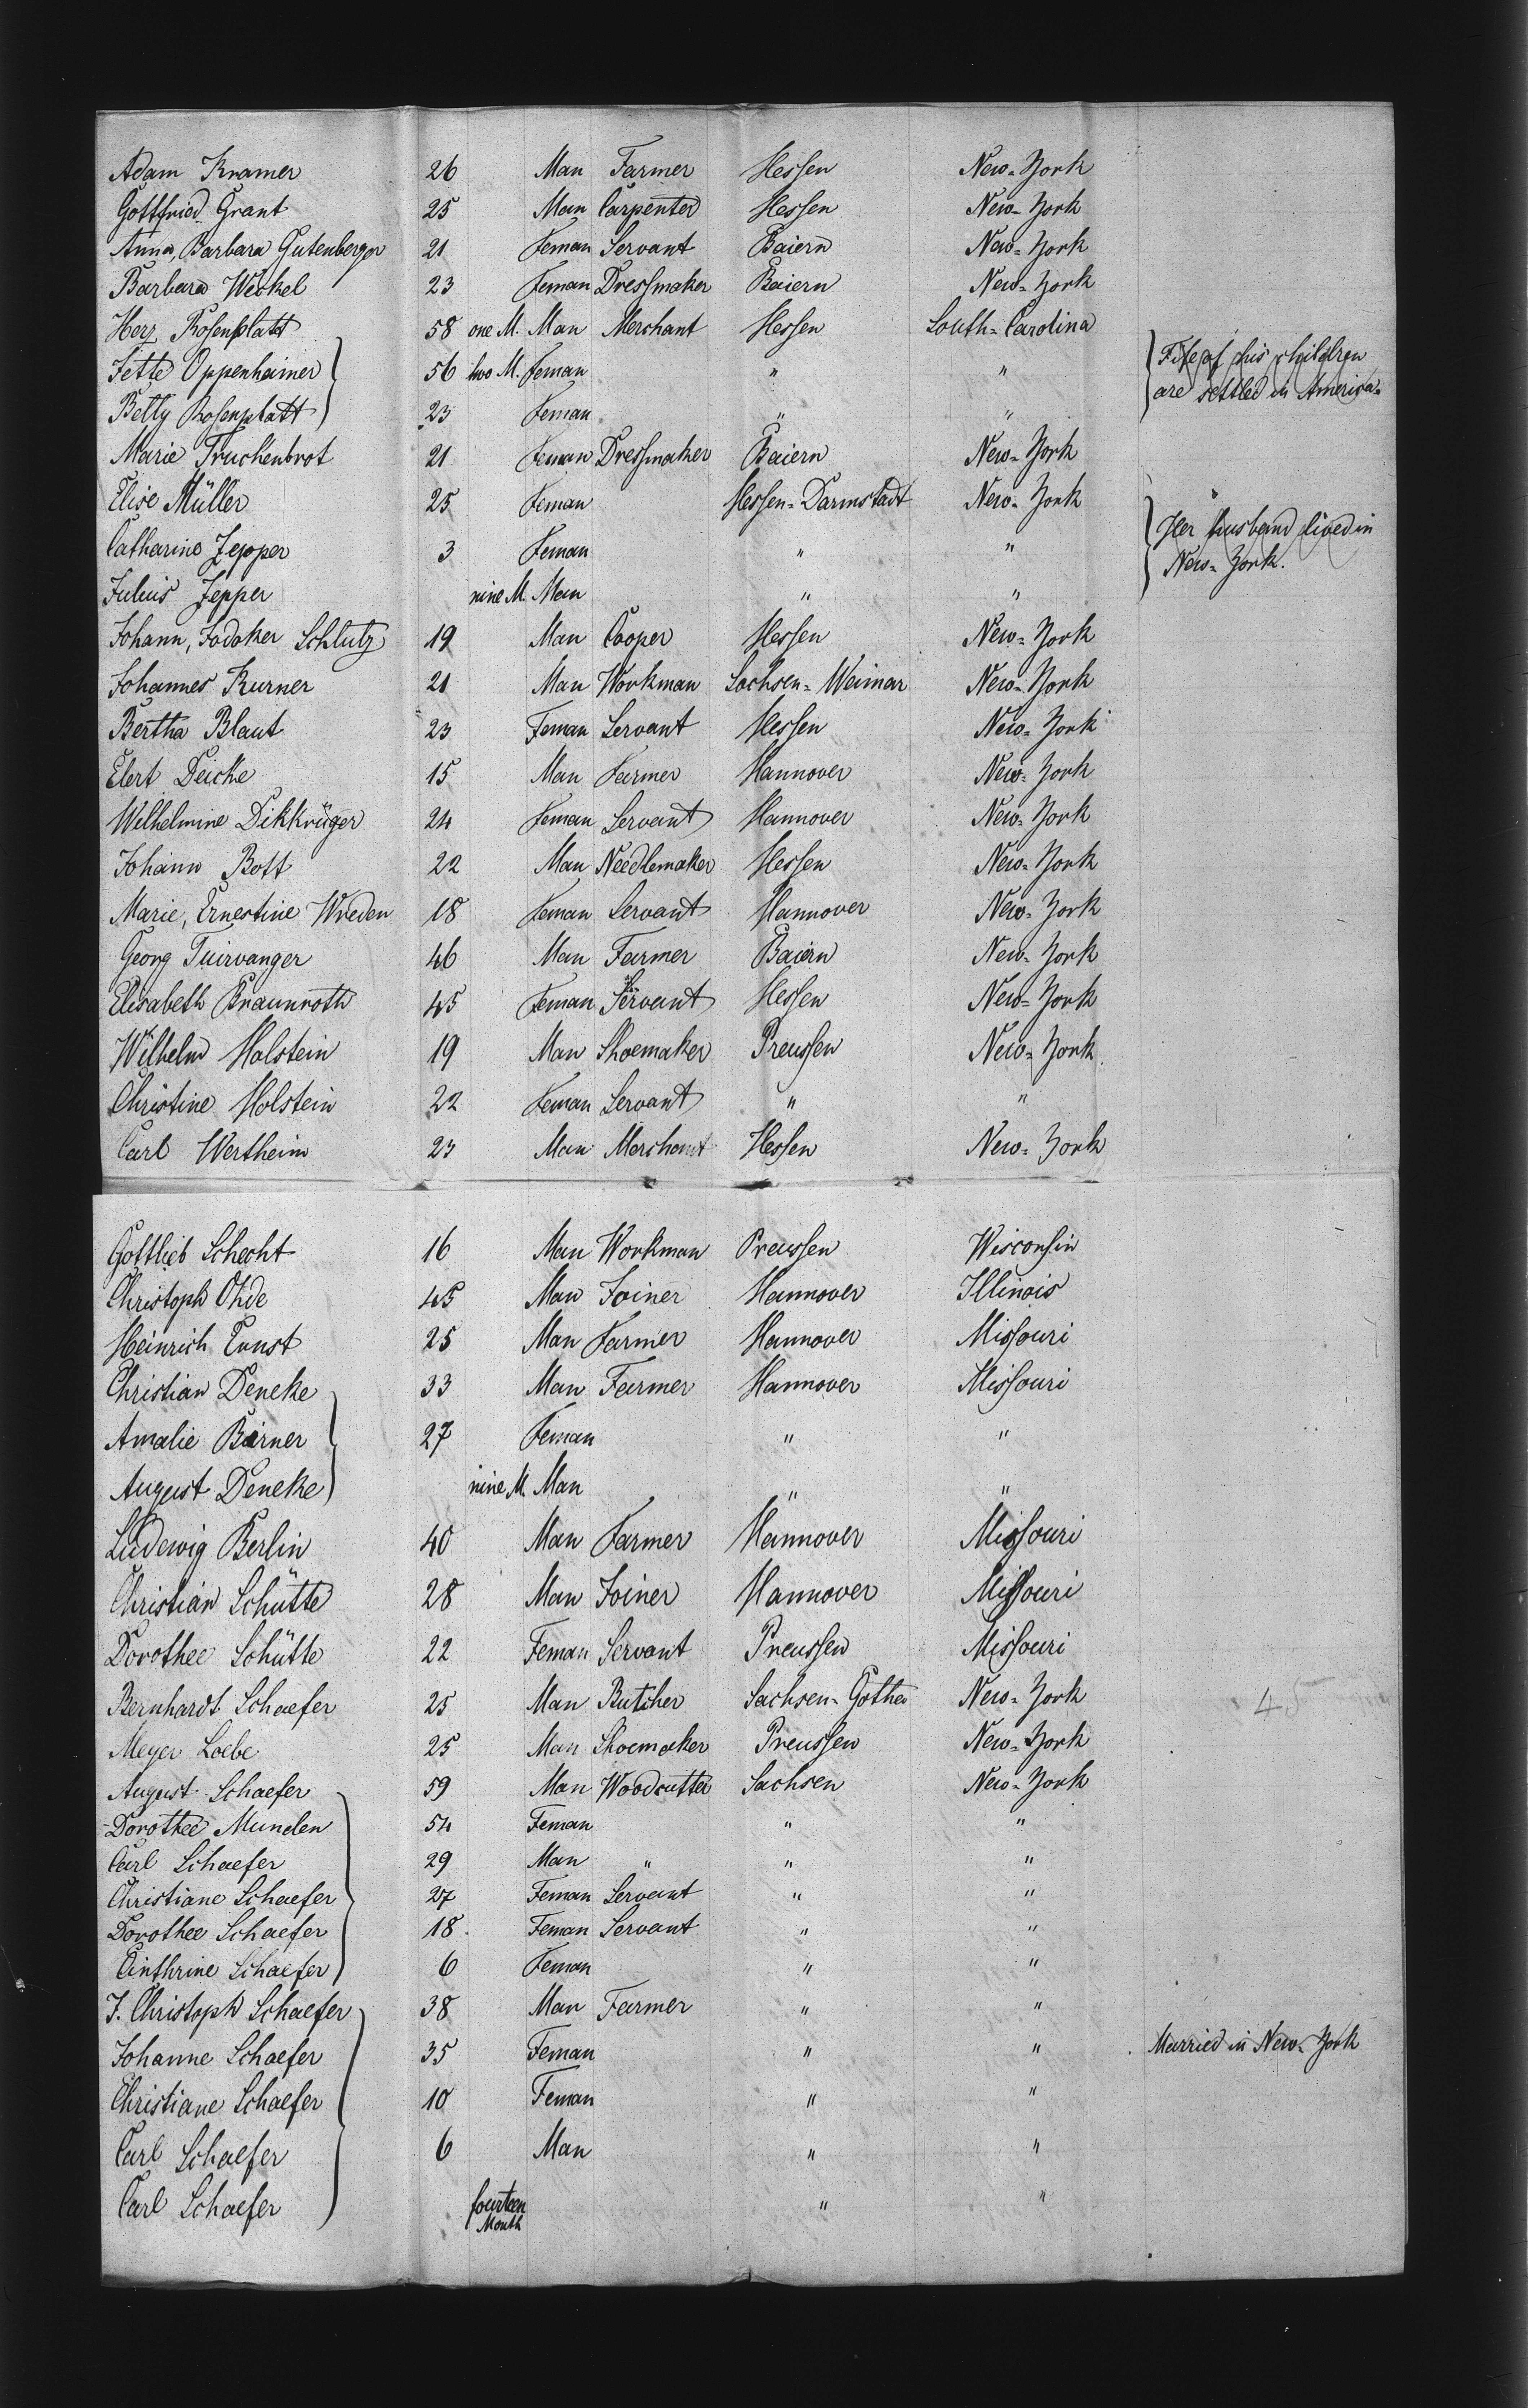 Adam Kramer 26 Man Farmer Hessen New-York
Gottfried Grant 25 Man Carpenter Hessen New-York
Anna, Barbara Gutenberger 21 Feman Servant Baiern New-York
Barbara Weckel 23 Feman Dressmaker Baiern New-York
Herz Rosenplatt 58 one M. Man Merchant Hessen South-Carolina
Jette Oppenheimer 56 two M. Feman " " Fife of his children
Betty Rosenplatt 23 Feman " " are settled in America.
Marie Truckenbrot 21 Feman Dressmaker Baiern New-York
Elise Müller 25 Feman Hessen-Darmstadt New-York
Catharine Jepper 3 Feman " " Her husband lived in
Julius Jepper nine M. Man " " New-York.
Johann, Jodoker Schlutz 19 Man Cooper Hessen New-York
Johannes Kurner 21 Man Workman Sachsen-Weimar New-York
Bertha Blaut 23 Feman Servant Hessen New-York
Elert Deicke 15 Man Farmer Hannover New-York
Wilhelmine Dikkrüger 24 Feman Servant Hannover New-York
Johann Bott 22 Man Needlemaker Hessen New-York
Marie, Ernestine Wreden 18 Feman Servant Hannover New-York
Georg 46 Man Farmer Baiern New-York
Elisabeth Braunroth 45 Feman Servant Hessen New-York
Wilhelm Holstein 19 Man Shoemaker Preussen New-York.
Christine Holstein 22 Feman Servant " "
Carl Wertheim 23 Man Merchant Hessen New-York
Gottlieb Schecht 16 Man Workman Preussen Wisconsin
Christoph Ohde 45 Man Joiner Hannover Illinois
Heinrich Ernst 25 Man Farmer Hannover Missouri
Christian Deneke 33 Man Farmer Hannover Missouri
Amalie Bärner 27 Feman " "
August Deneke nine M. Man " "
Ludewig Berlin 40 Man Farmer Hannover Missouri
Christian Schütte 28 Man Joiner Hannover Missouri
Dorothee Schütte 22 Feman Servant Preussen Missouri
Bernhardt Schaefer 25 Man Butcher Sachsen-Gotha New-York 45
Meyer Loebe 25 Man Shoemaker Preussen New-York
August Schaefer 59 Man Woodcutter Sachsen New-York
Dorothee Munden 54 Feman " "
Carl Schaefer 29 Man " " "
Christiane Schaefer 27 Feman Servant " "
Dorothee Schaefer 18 Feman Servant " "
Cinthrine Schaefer 6 Feman " "
J. Christoph Schaefer 38 Man Farmer " "
Johanne Schaefer 35 Feman " " Married in New-York
Christiane Schaefer 10 Feman " "
Carl Schaefer 6 Man " "
Carl Schaefer fourteen " "
Month